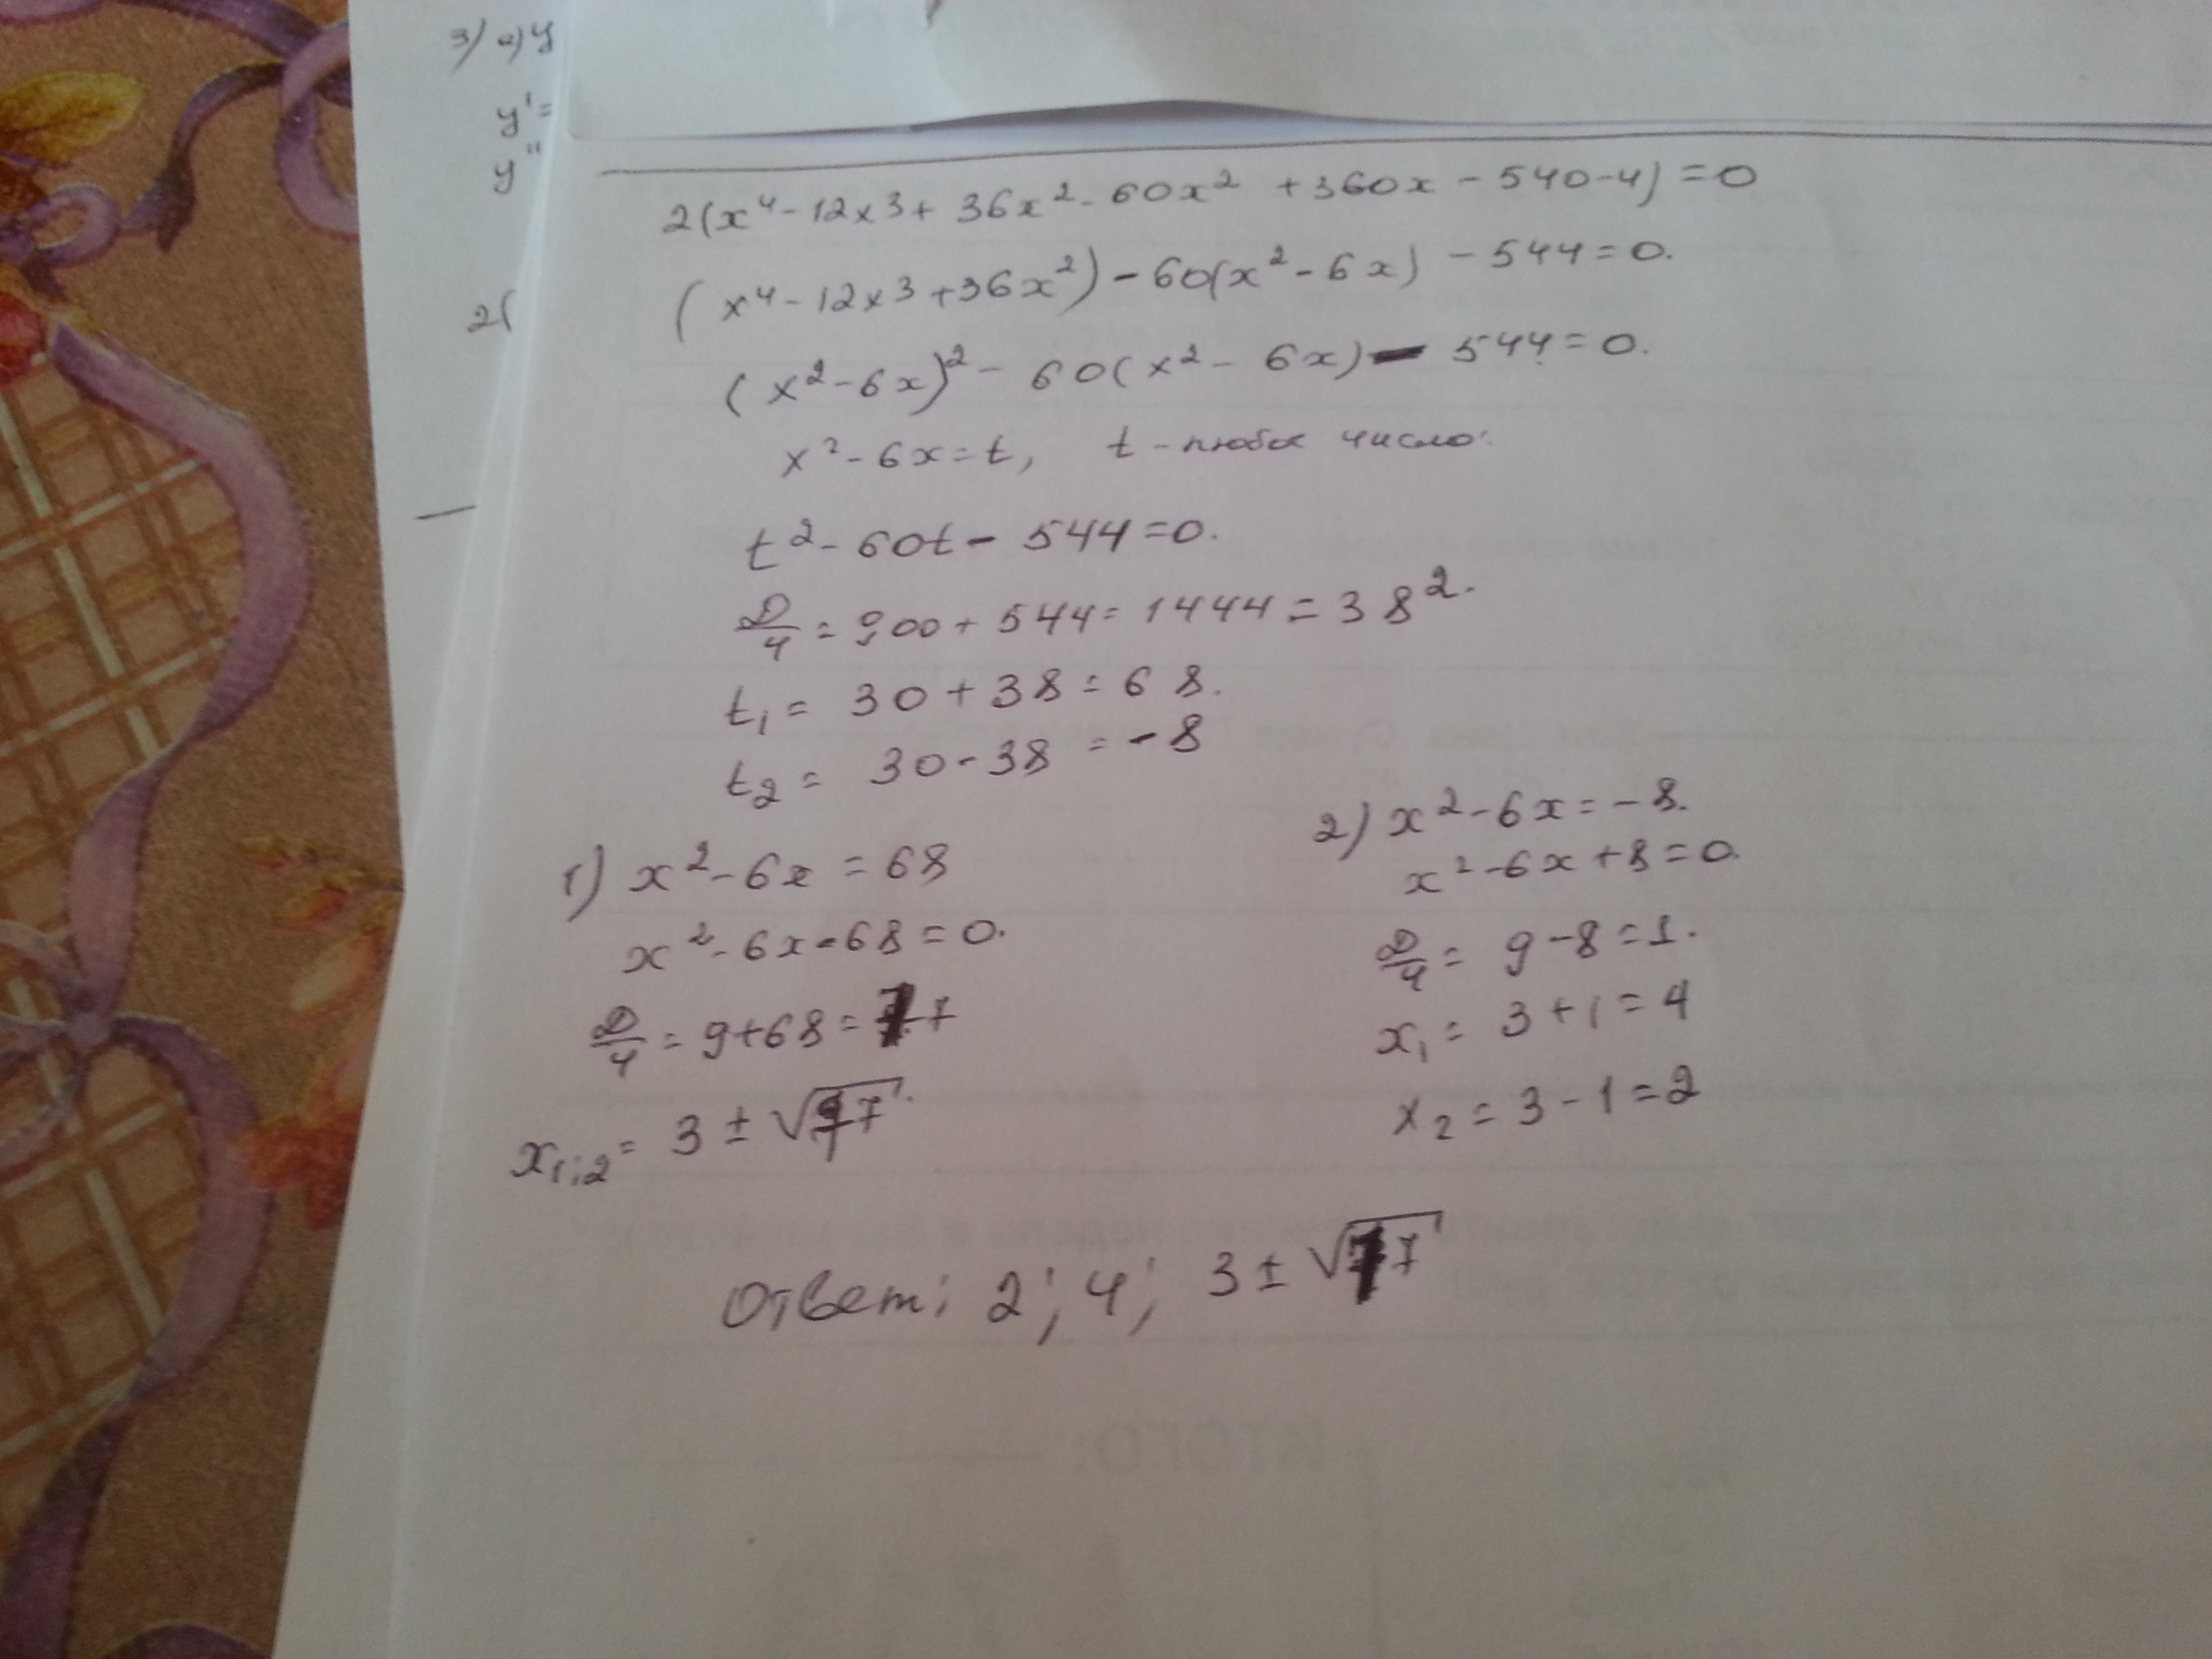 3) a) y
y' =
y''
2(x⁴ - 12x³ + 36x² - 60x² + 360x - 540 - 4) = 0
(x⁴ - 12x³ + 36x²) - 60(x² - 6x) - 544 = 0.
2(
(x² - 6x)² - 60(x² - 6x) - 544 = 0.
x² - 6x = t, t - любое число.
—
t² - 60t - 544 = 0.
D/4 = 900 + 544 = 1444 = 38².
t₁ = 30 + 38 = 68.
t₂ = 30 - 38 = -8
1) x² - 6x = 68
x² - 6x - 68 = 0.
D/4 = 9 + 68 = 77
x₁;₂ = 3 ± √77.
2) x² - 6x = -8.
x² - 6x + 8 = 0.
D/4 = 9 - 8 = 1.
x₁ = 3 + 1 = 4
x₂ = 3 - 1 = 2
Ответ: 2; 4; 3 ± √77
ИТОГО: